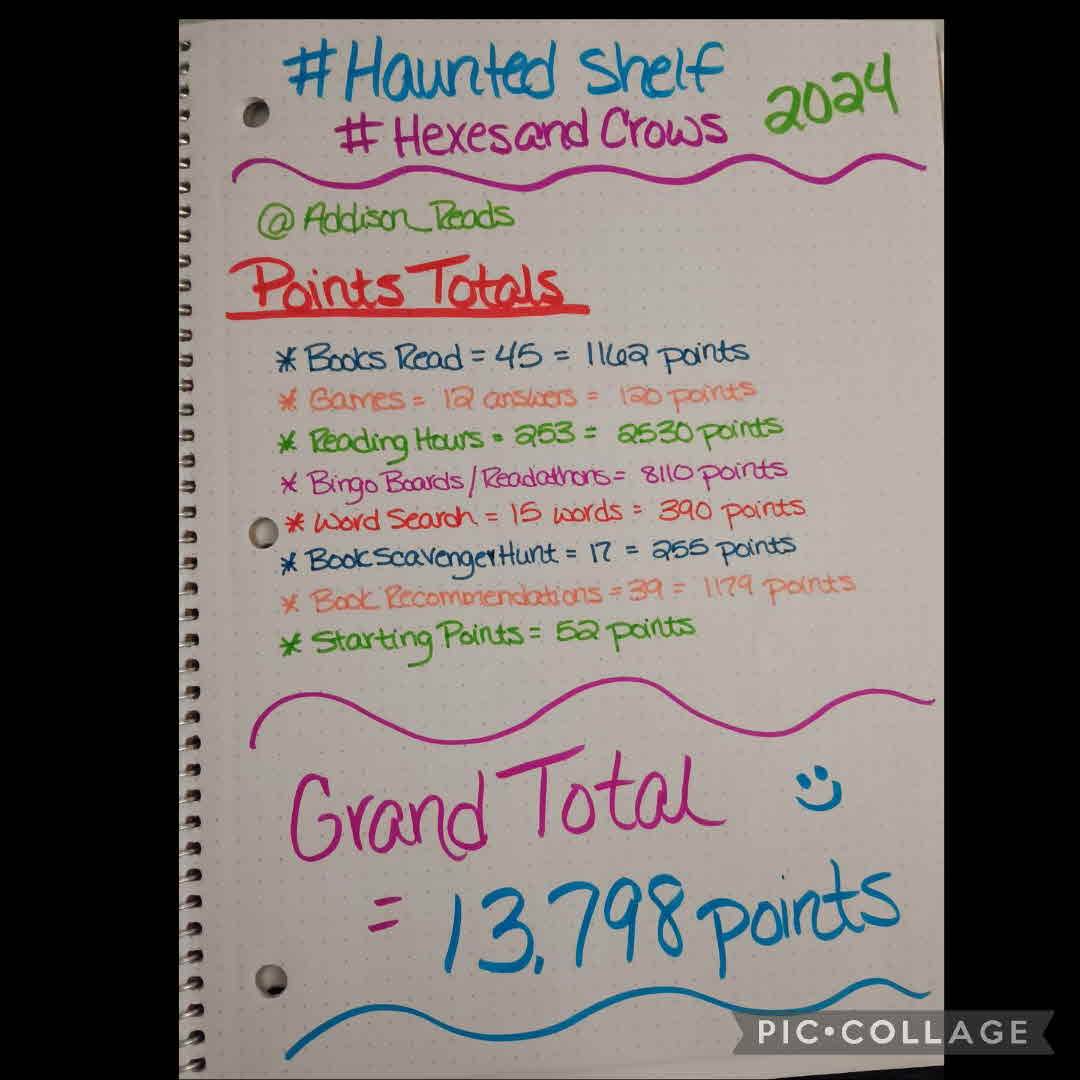 #Haunted Shelf
#HexesandCrows 2024
@Addison_Reads
Points Totals
* Books Read = 45 = 1162 points
* Games = 12 answers = 120 points
* Reading Hours = 253 = 2530 points
* Bingo Boards/Readathons = 8110 points
* Word Search = 15 words = 390 points
* Book Scavenger Hunt = 17 = 255 points
* Book Recommendations = 39 = 1179 points
* Starting Points = 52 points
Grand Total
= 13,798 points
PIC•COLLAGE